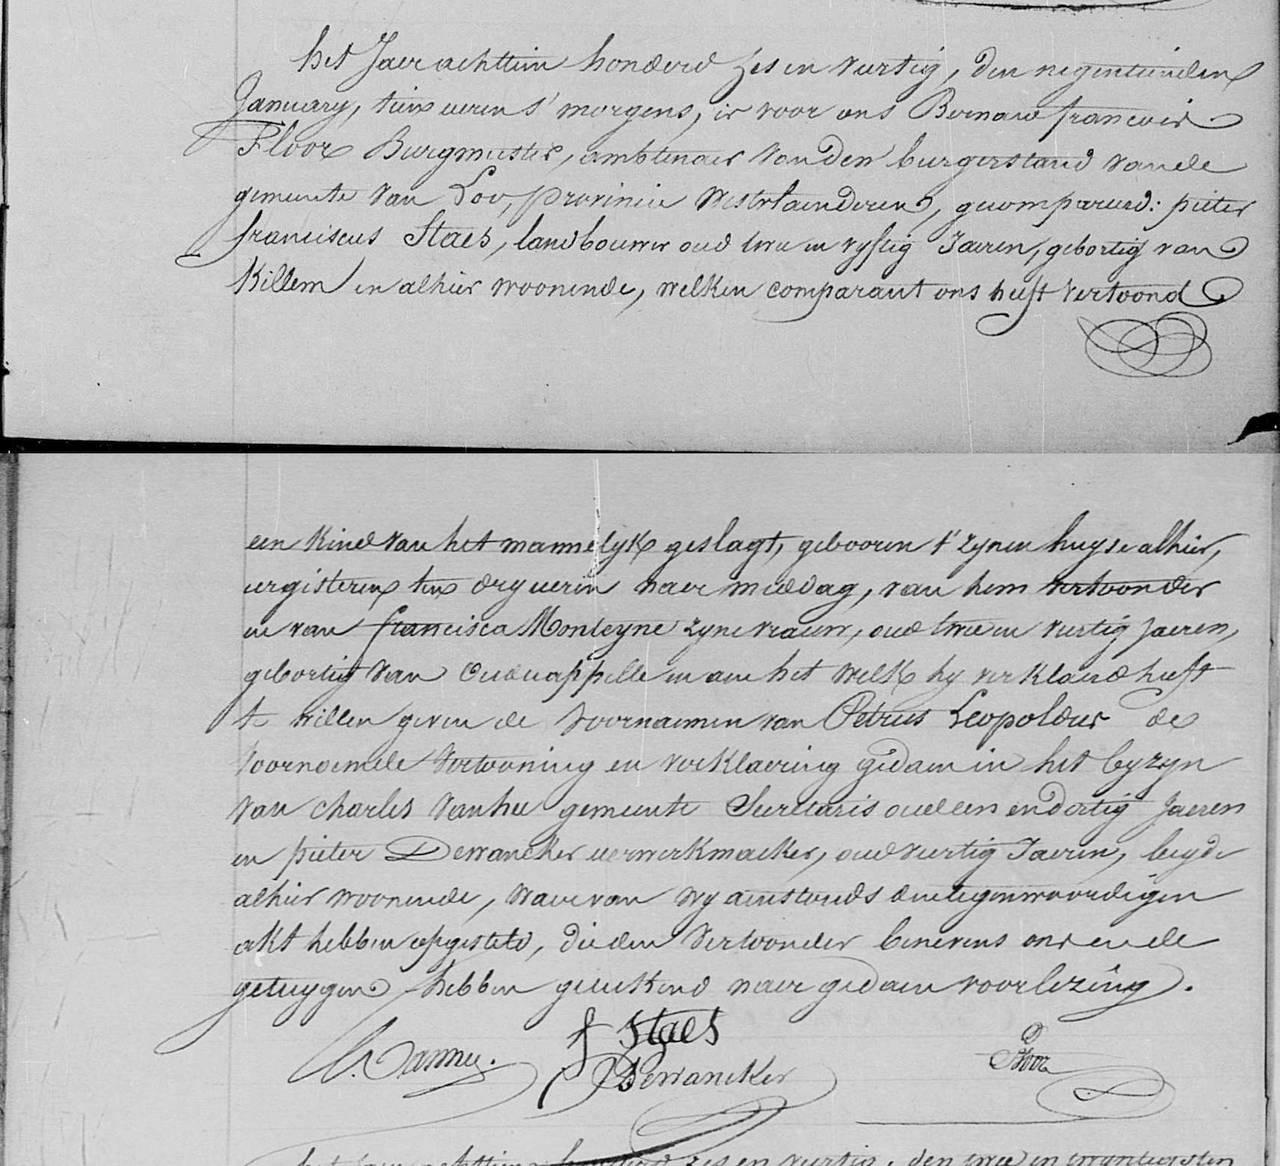 het Jaer achttien honderd zes en veertig, den negentienden
January, tien ueren s' morgens, is voor ons Bernard francois
Floor Burgmeester, ambtenaer van den burgerstand van de
gemeente van Loo, provincie Westvlaenderen, gecompareerd: pieter
franciscus Staes, landbouwer oud twee en vyftig Jaeren, gebortig van
Killem en alhier woonende, welken comparant ons heeft vertoond
een kind van het mannelyk geslagt, gebooren t' zynen huyse alhier,
eergisteren ten dry ueren naer middag, van hem vertoonder
en van francisca Monteyne zyne vrauw, oud twee en veertig Jaeren,
gebortig van Oudecappelle en aen het welk hy verklaerd heeft
te willen geven de voornaemen van Petrus Leopoldus de
voornoemde vertooning en verklaering gedaen in het byzyn
van charles Vanhee gemeente Secretaris oud een en dertig Jaeren
en pieter Dewancker uerwerkmaeker, oud veertig Jaeren, beyde
alhier woonende, waervan wy aenstonds den tegenwoordigen
akt hebben opgesteld, die den vertoonder benevens ons en de
getuygen hebben geteekend naer gedaen voorlezing.
f Staes
Dewancker
Floor
het Jaer achttien honderd zes en veertig, den twee en twintigsten